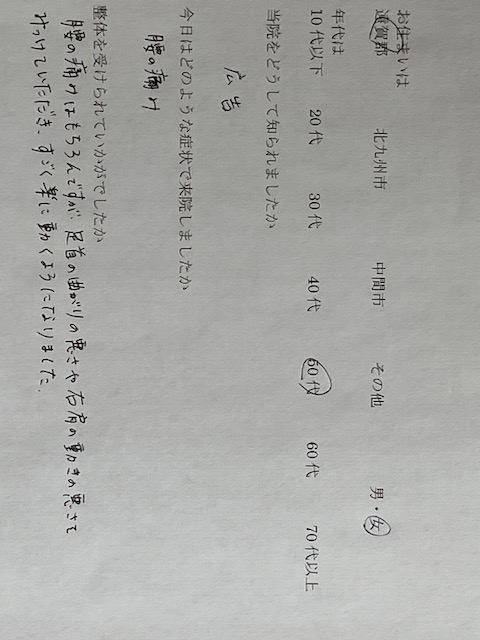 お住まいは
遠賀郡 北九州市 中間市 その他 男・女
年代は
10代以下 20代 30代 40代 50代 60代 70代以上
当院をどうして知られましたか
広告
今日はどのような症状で来院しましたか
腰の痛み
整体を受けられていかがでしたか
腰の痛みはもちろんですが、足首の曲がりの悪さや右肩の動きの悪さを
みつけていただき、すごく楽に動くようになりました。